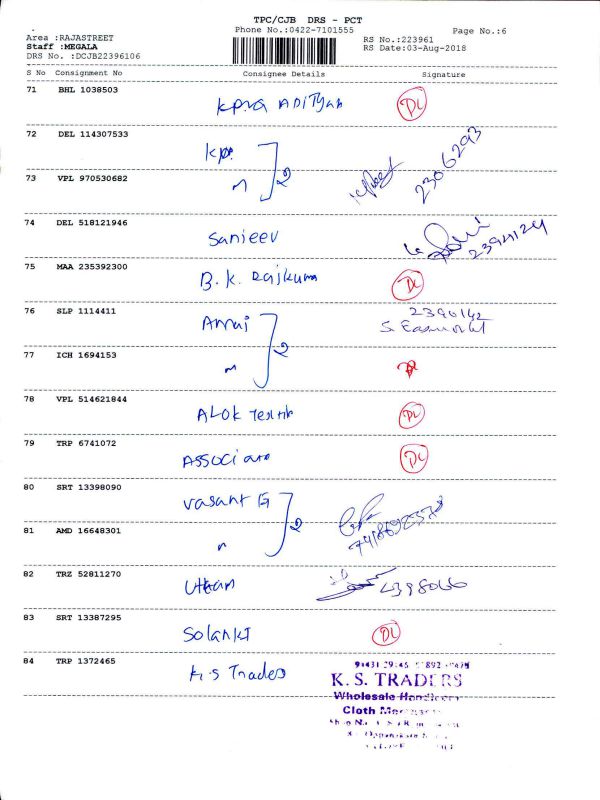 TPC/CJB DRS - PCT
Area :RAJASTREET
Phone No.:0422-7101555
Page No.:6
Staff :MEGALA
RS No.:223961
DRS No. :DCJB22396106
RS Date:03-Aug-2018
S No Consignment No Consignee Details Signature
71 BHL 1038503
Kpva ADITYAH DL
72 DEL 114307533
2306293
73 VPL 970530682
2
74 DEL 518121946
Sanjeev 2394124
75 MAA 235392300
B.K. Rajkuma DL
76 SLP 1114411
2390142
77 ICH 1694153
2
78 VPL 514621844
ALOK Textile DL
79 TRP 6741072
Associate DL
80 SRT 13398090
Vasant
81 AMD 16648301
2
82 TRZ 52811270
Uttam 2398066
83 SRT 13387295
Solanki DL
84 TRP 1372465
K.S Trades
K. S. TRADERS
Wholesale
Cloth